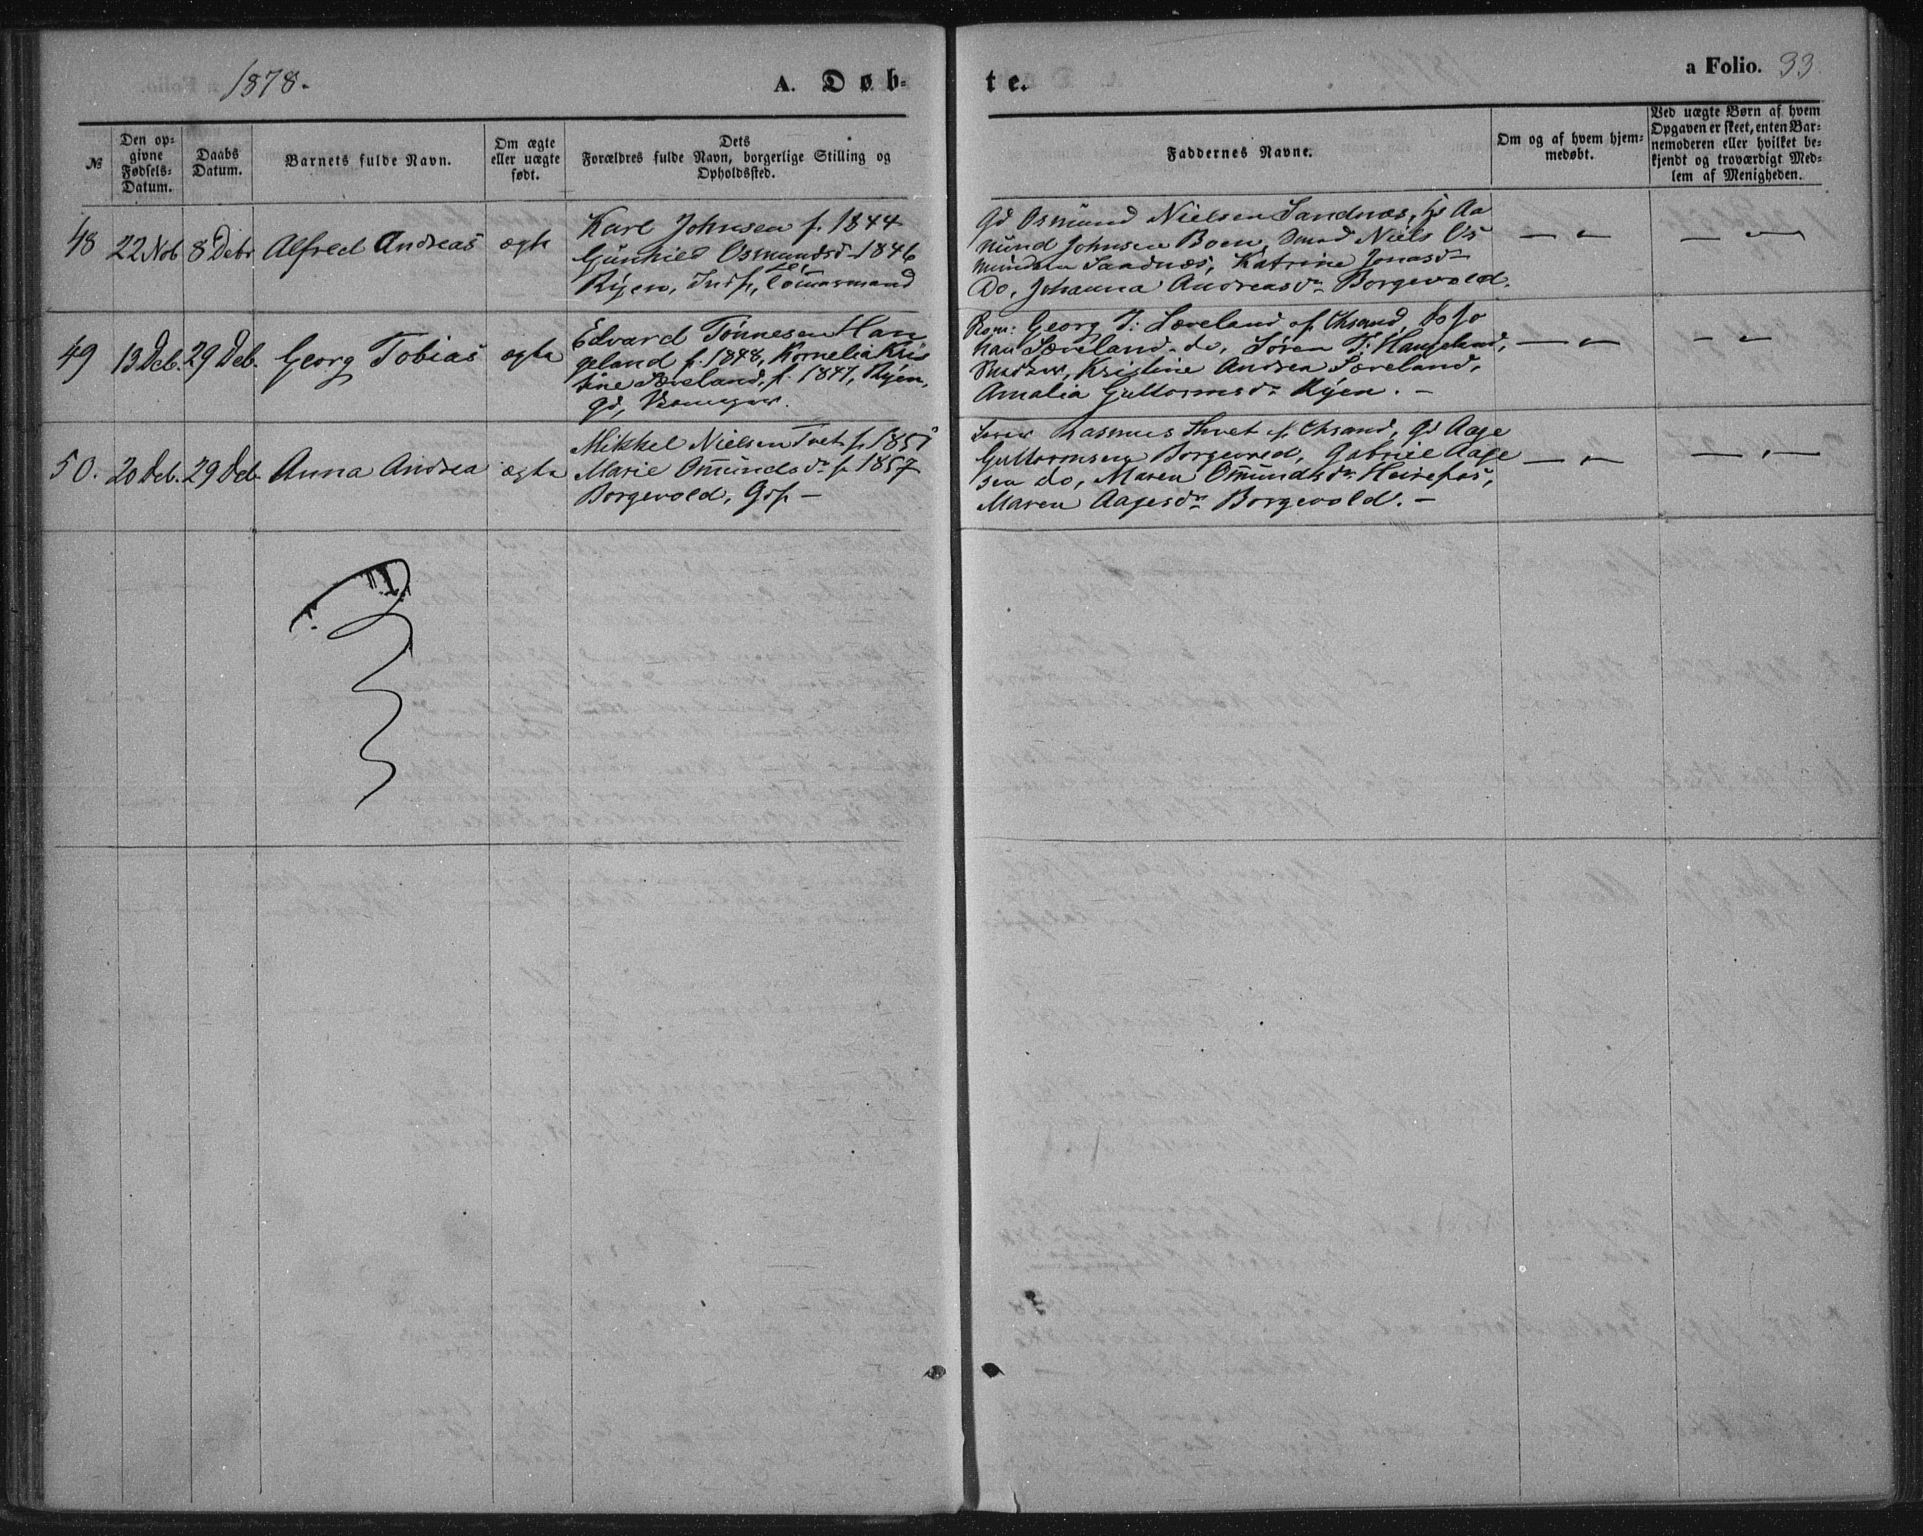 1878.
A. Døb-
te.
a Folio. 33.
№
Den op-
givne
Fødsels-
Datum.
Daabs
Datum.
Barnets fulde Navn.
Om ægte
eller uægte
født.
Dets
Forældres fulde Navn, borgerlige Stilling og
Opholdssted.
Faddernes Navne.
Om og af hvem hjem-
medøbt.
Ved uægte Børn af hvem
Opgaven er skeet, enten Bar-
nemoderen eller hvilket be-
kjendt og troværdigt Med-
lem af Menigheden.
48
22 Nob
8 Debr
Alfred Andreas
ægte
Karl Johnsen f. 1844
Gunhild Osmundsd 1846
Ryen, Indf, Tömmermand
Gd Osmund Nielsen Sandnæs, Hs Aa
mund Johnsen Boen, Smed Niels Os
mundsen Sandnæs, Katrine Jonasd
Do, Johanna Andreasdr Borgevold.
— " —
— " —
49
13 Deb.
29 Deb.
Georg Tobias
ægte
Edvard Tönnesen Hau
geland f. 1848, Kornelia Kris
tine Læveland, f. 1847, Ryen,
Gd,
Georg T: Læveland af Chsand, Jo
han Læveland do, Sören T: Haugeland,
Kristine Andrea Læveland,
Amalia Guttormsdr Ryen. —
— " —
— " —
50.
20 Deb.
29 Deb
Anna Andrea
ægte
Mikkel Nielsen Tvet f. 1851
Marie Omundsdr f. 1857
Borgevold, Gdf —
Rasmus Thvet f. Chsand, Gd Aage
Guttormsen Borgevold, Gabriel Aage
sen do, Maren Omundsdr Heirefos,
Maren Aagesdr Borgevold. —
— " —
— " —